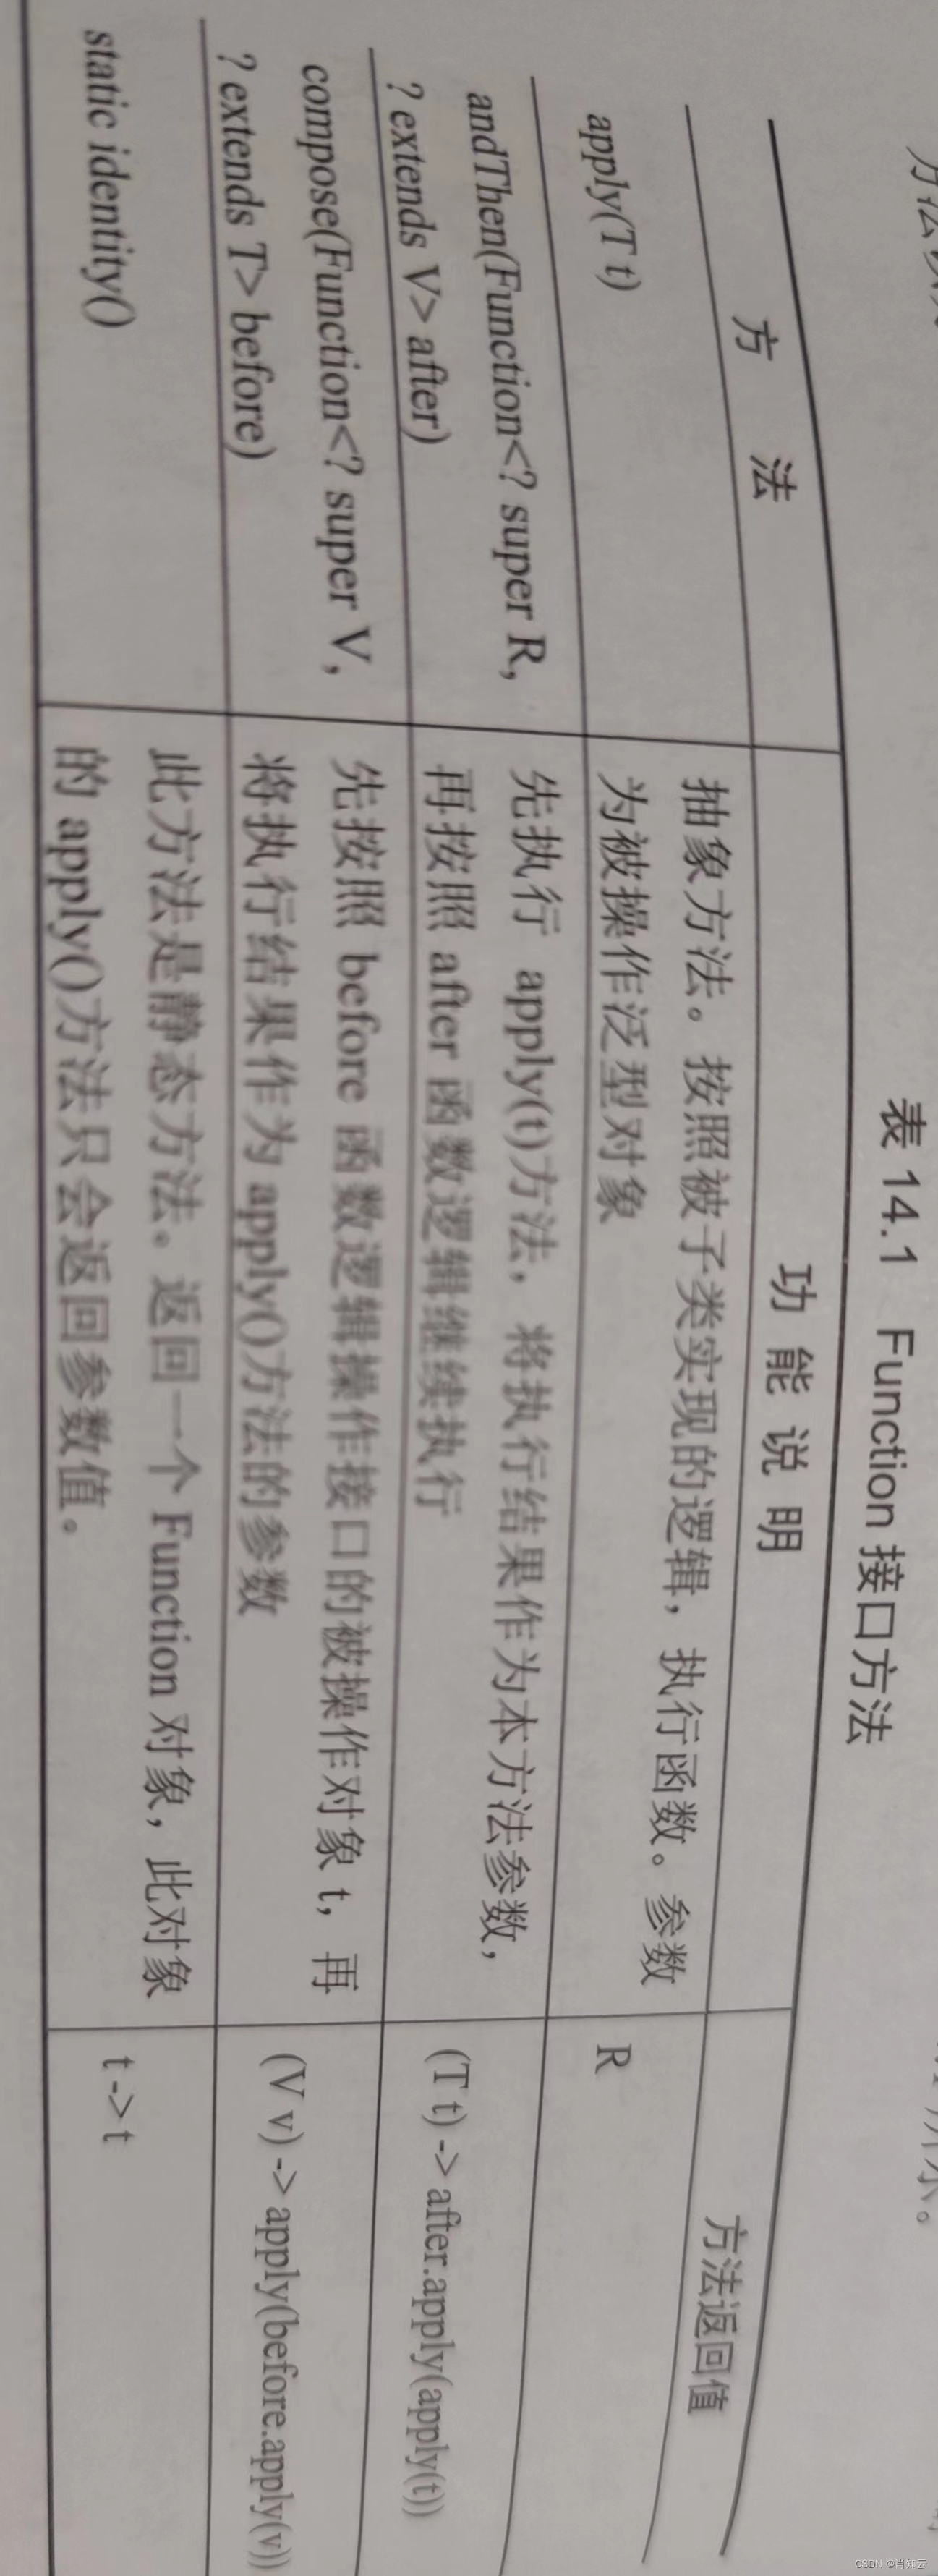 表 14.1 Function 接口方法
方 法
功 能 说 明
方法返回值
apply(T t)
抽象方法。按照被子类实现的逻辑，执行函数。参数
为被操作泛型对象
R
andThen(Function<? super R,
? extends V> after)
先执行 apply(t)方法，将执行结果作为本方法参数，
再按照 after 函数逻辑继续执行
(T t) -> after.apply(apply(t))
compose(Function<? super V,
? extends T> before)
先按照 before 函数逻辑操作接口的被操作对象 t，再
将执行结果作为 apply()方法的参数
(V v) -> apply(before.apply(v))
static identity()
此方法是静态方法。返回一个 Function 对象，此对象
的 apply()方法只会返回参数值。
t -> t
CSDN @肖知云